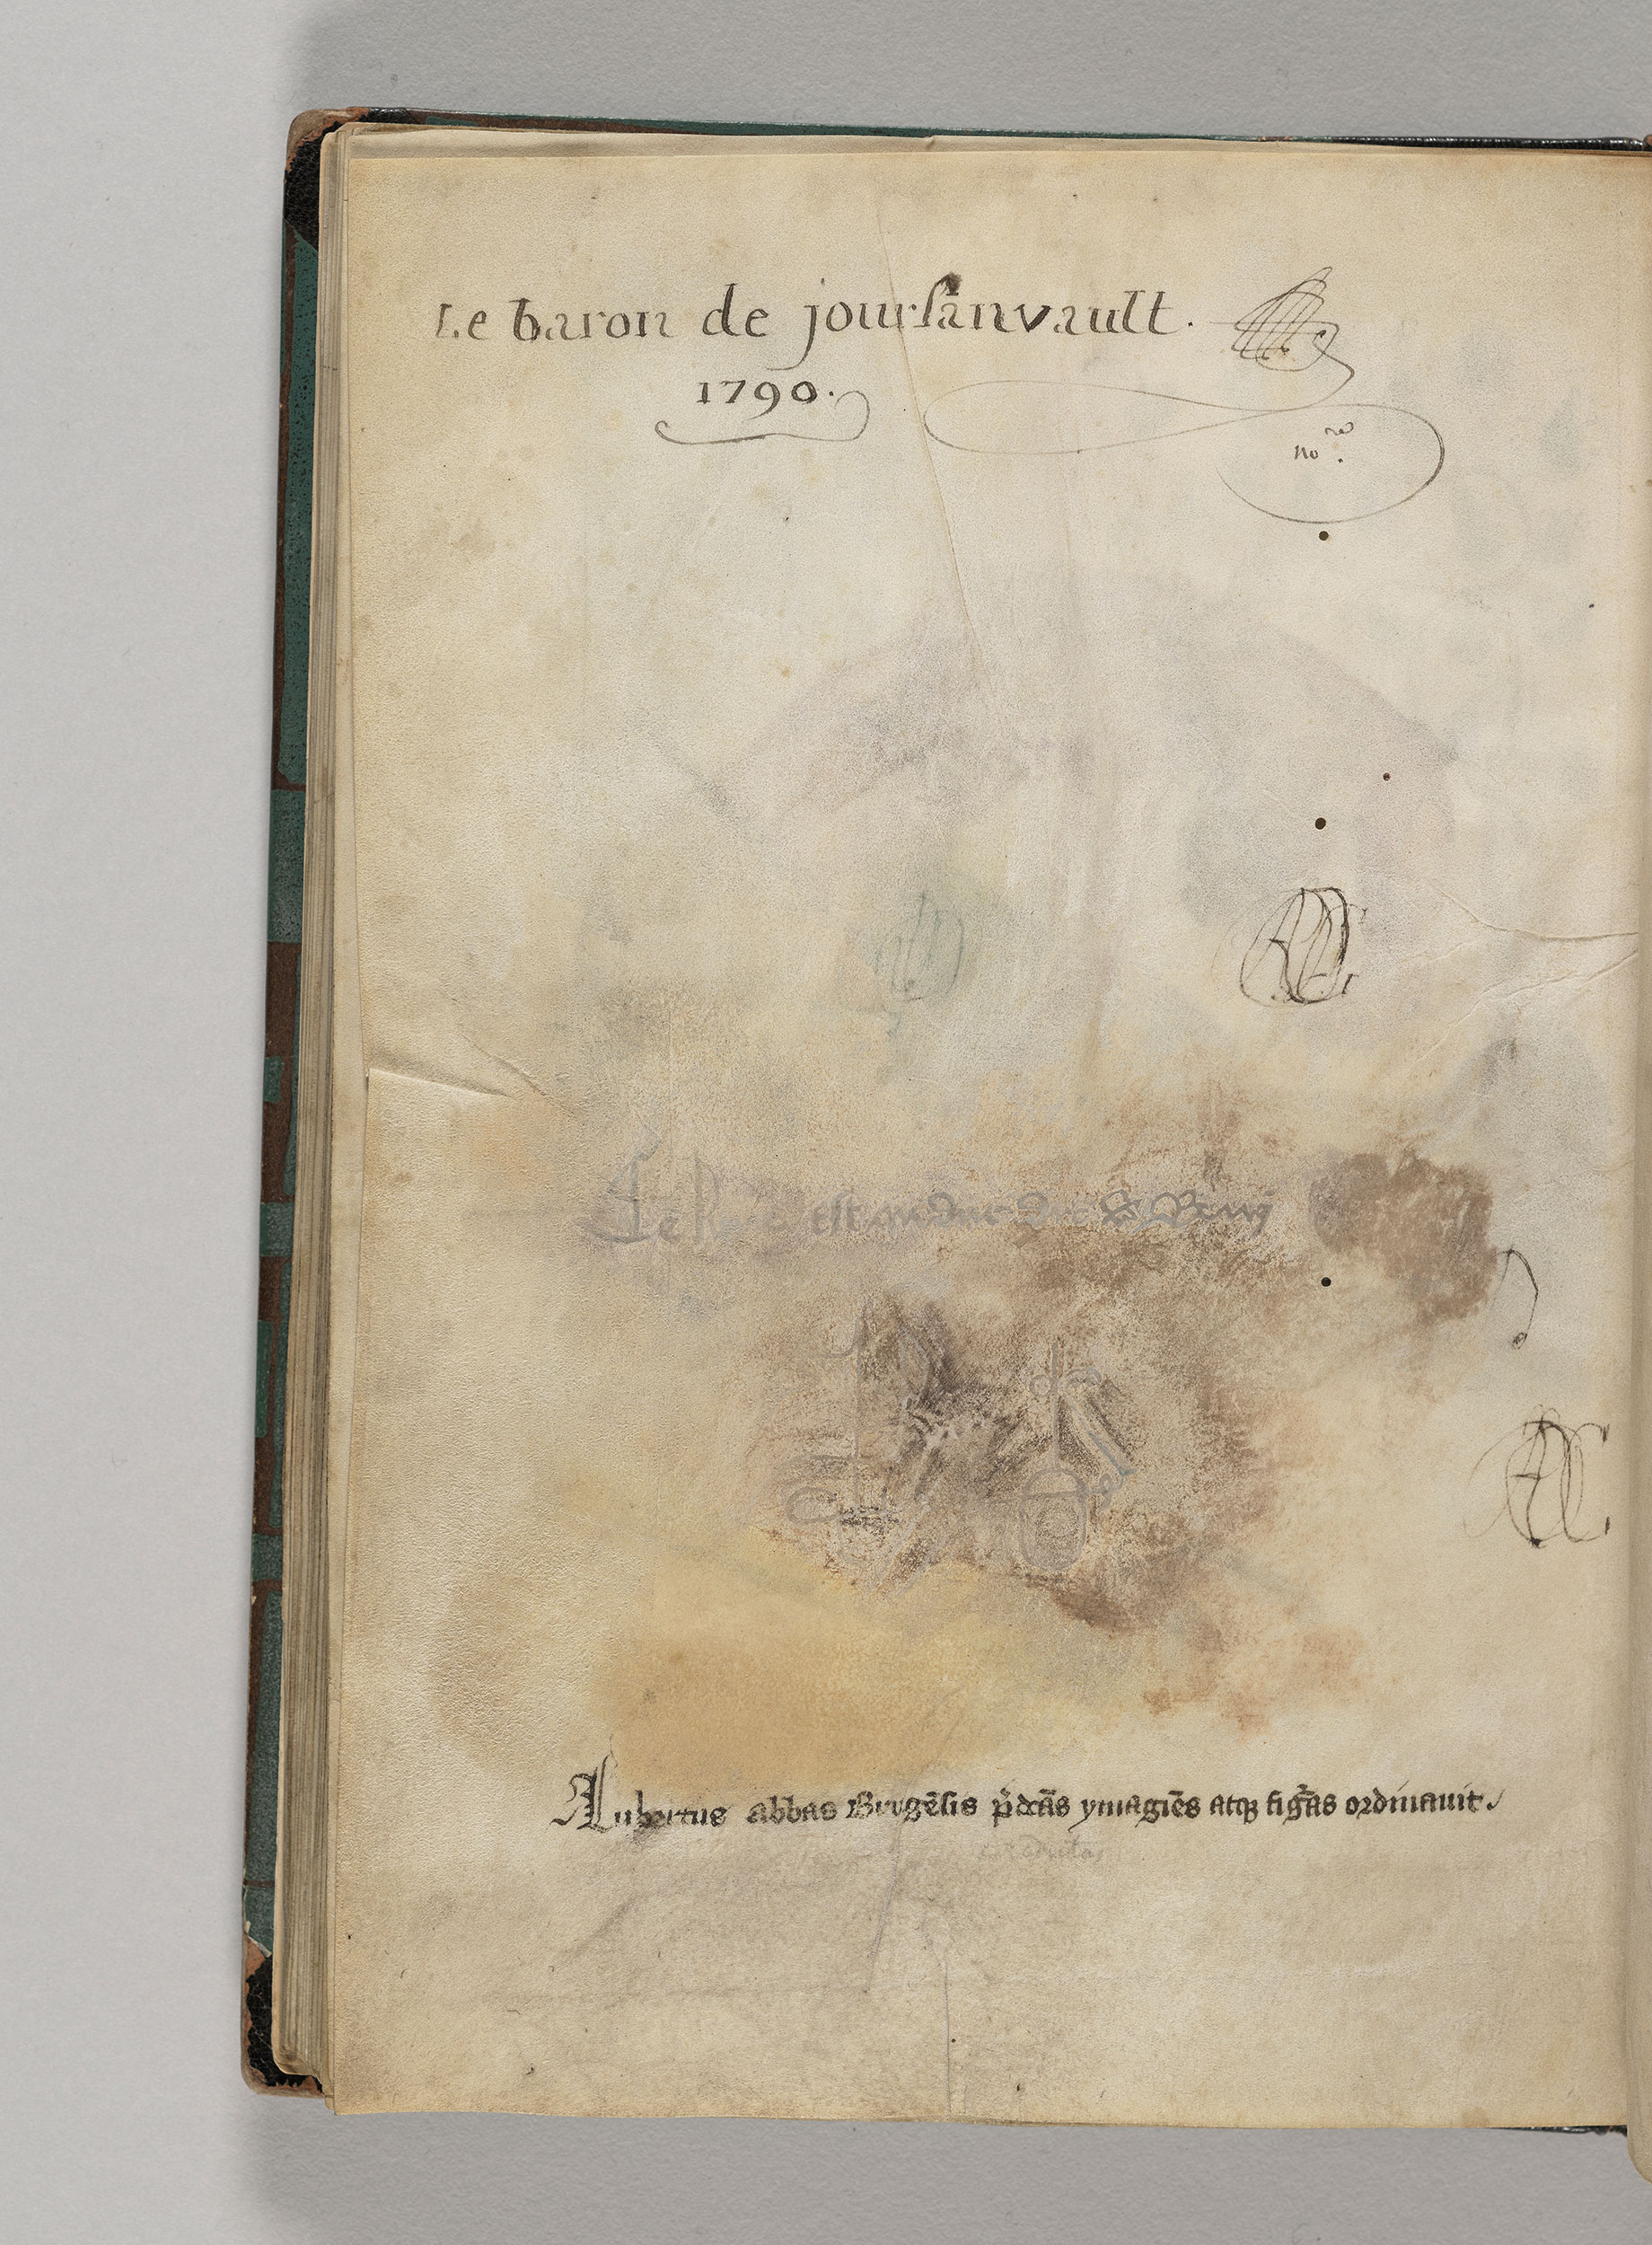 Le baron de joursanvault.
1790.
no re.
Ce livre est au duc de Berry
Aubertus abbas Brugēsis p̄dc̄as ymagiēs atq; figᷓas ordinauit.